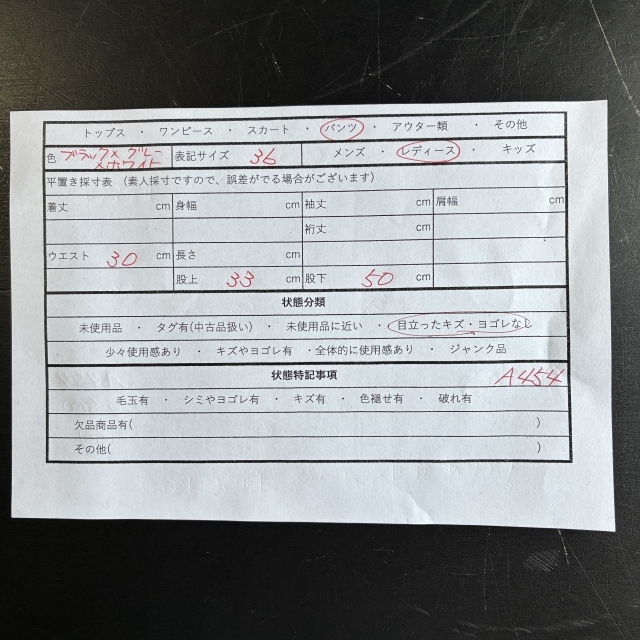 トップス ・ ワンピース ・ スカート ・ パンツ ・ アウター類 ・ その他
色 ブラック× グレー ×ホワイト 表記サイズ 36 メンズ ・ レディース ・ キッズ
平置き採寸表 (素人採寸ですので、誤差がでる場合がございます)
着丈 cm 身幅 cm 袖丈 cm 肩幅 cm
裄丈 cm
ウエスト 30 cm 長さ
股上 33 cm 股下 50 cm
状態分類
未使用品 ・ タグ有(中古品扱い) ・ 未使用品に近い ・ 目立ったキズ・ヨゴレなし
・ 少々使用感あり ・ キズやヨゴレ有 ・全体的に使用感あり ・ ジャンク品
状態特記事項 A454
毛玉有 ・ シミやヨゴレ有 ・ キズ有 ・ 色褪せ有 ・ 破れ有
欠品商品有( )
その他( )